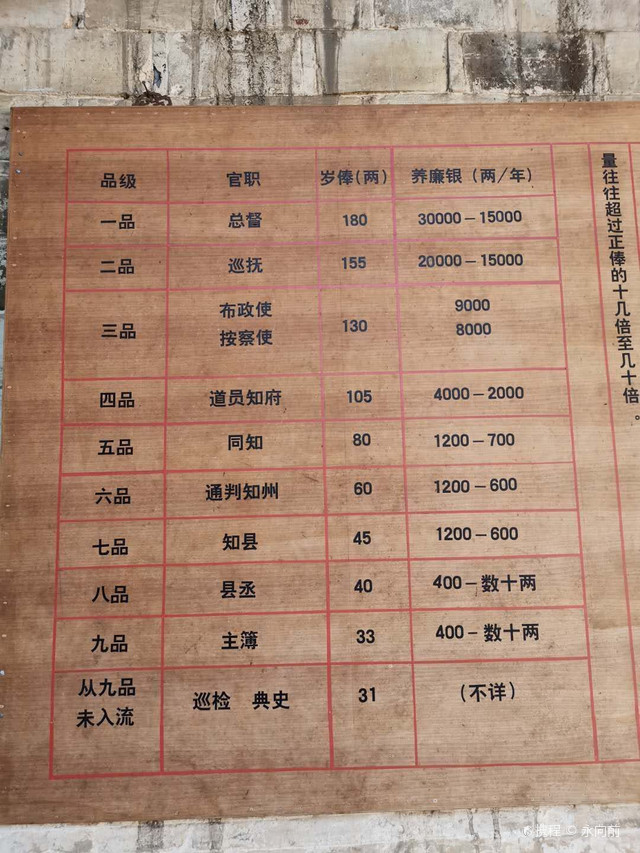 品级 官职 岁俸(两) 养廉银（两/年）
一品 总督 180 30000－15000
二品 巡抚 155 20000－15000
三品 布政使 按察使 130 9000 8000
四品 道员知府 105 4000－2000
五品 同知 80 1200－700
六品 通判知州 60 1200－600
七品 知县 45 1200－600
八品 县丞 40 400-数十两
九品 主簿 33 400-数十两
从九品 未入流 巡检 典史 31 （不详）
量往往超过正俸的十几倍至几十倍。
携程 © 永向前